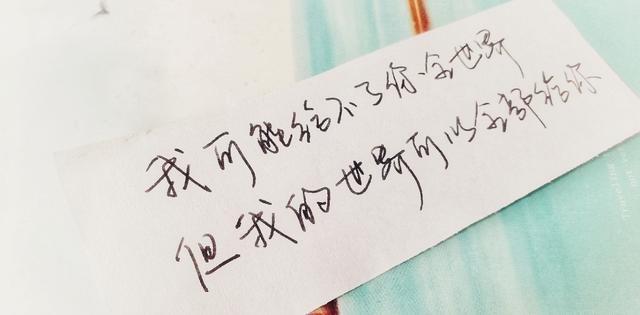 我可能给不了你全世界
但我的世界可以全部给你